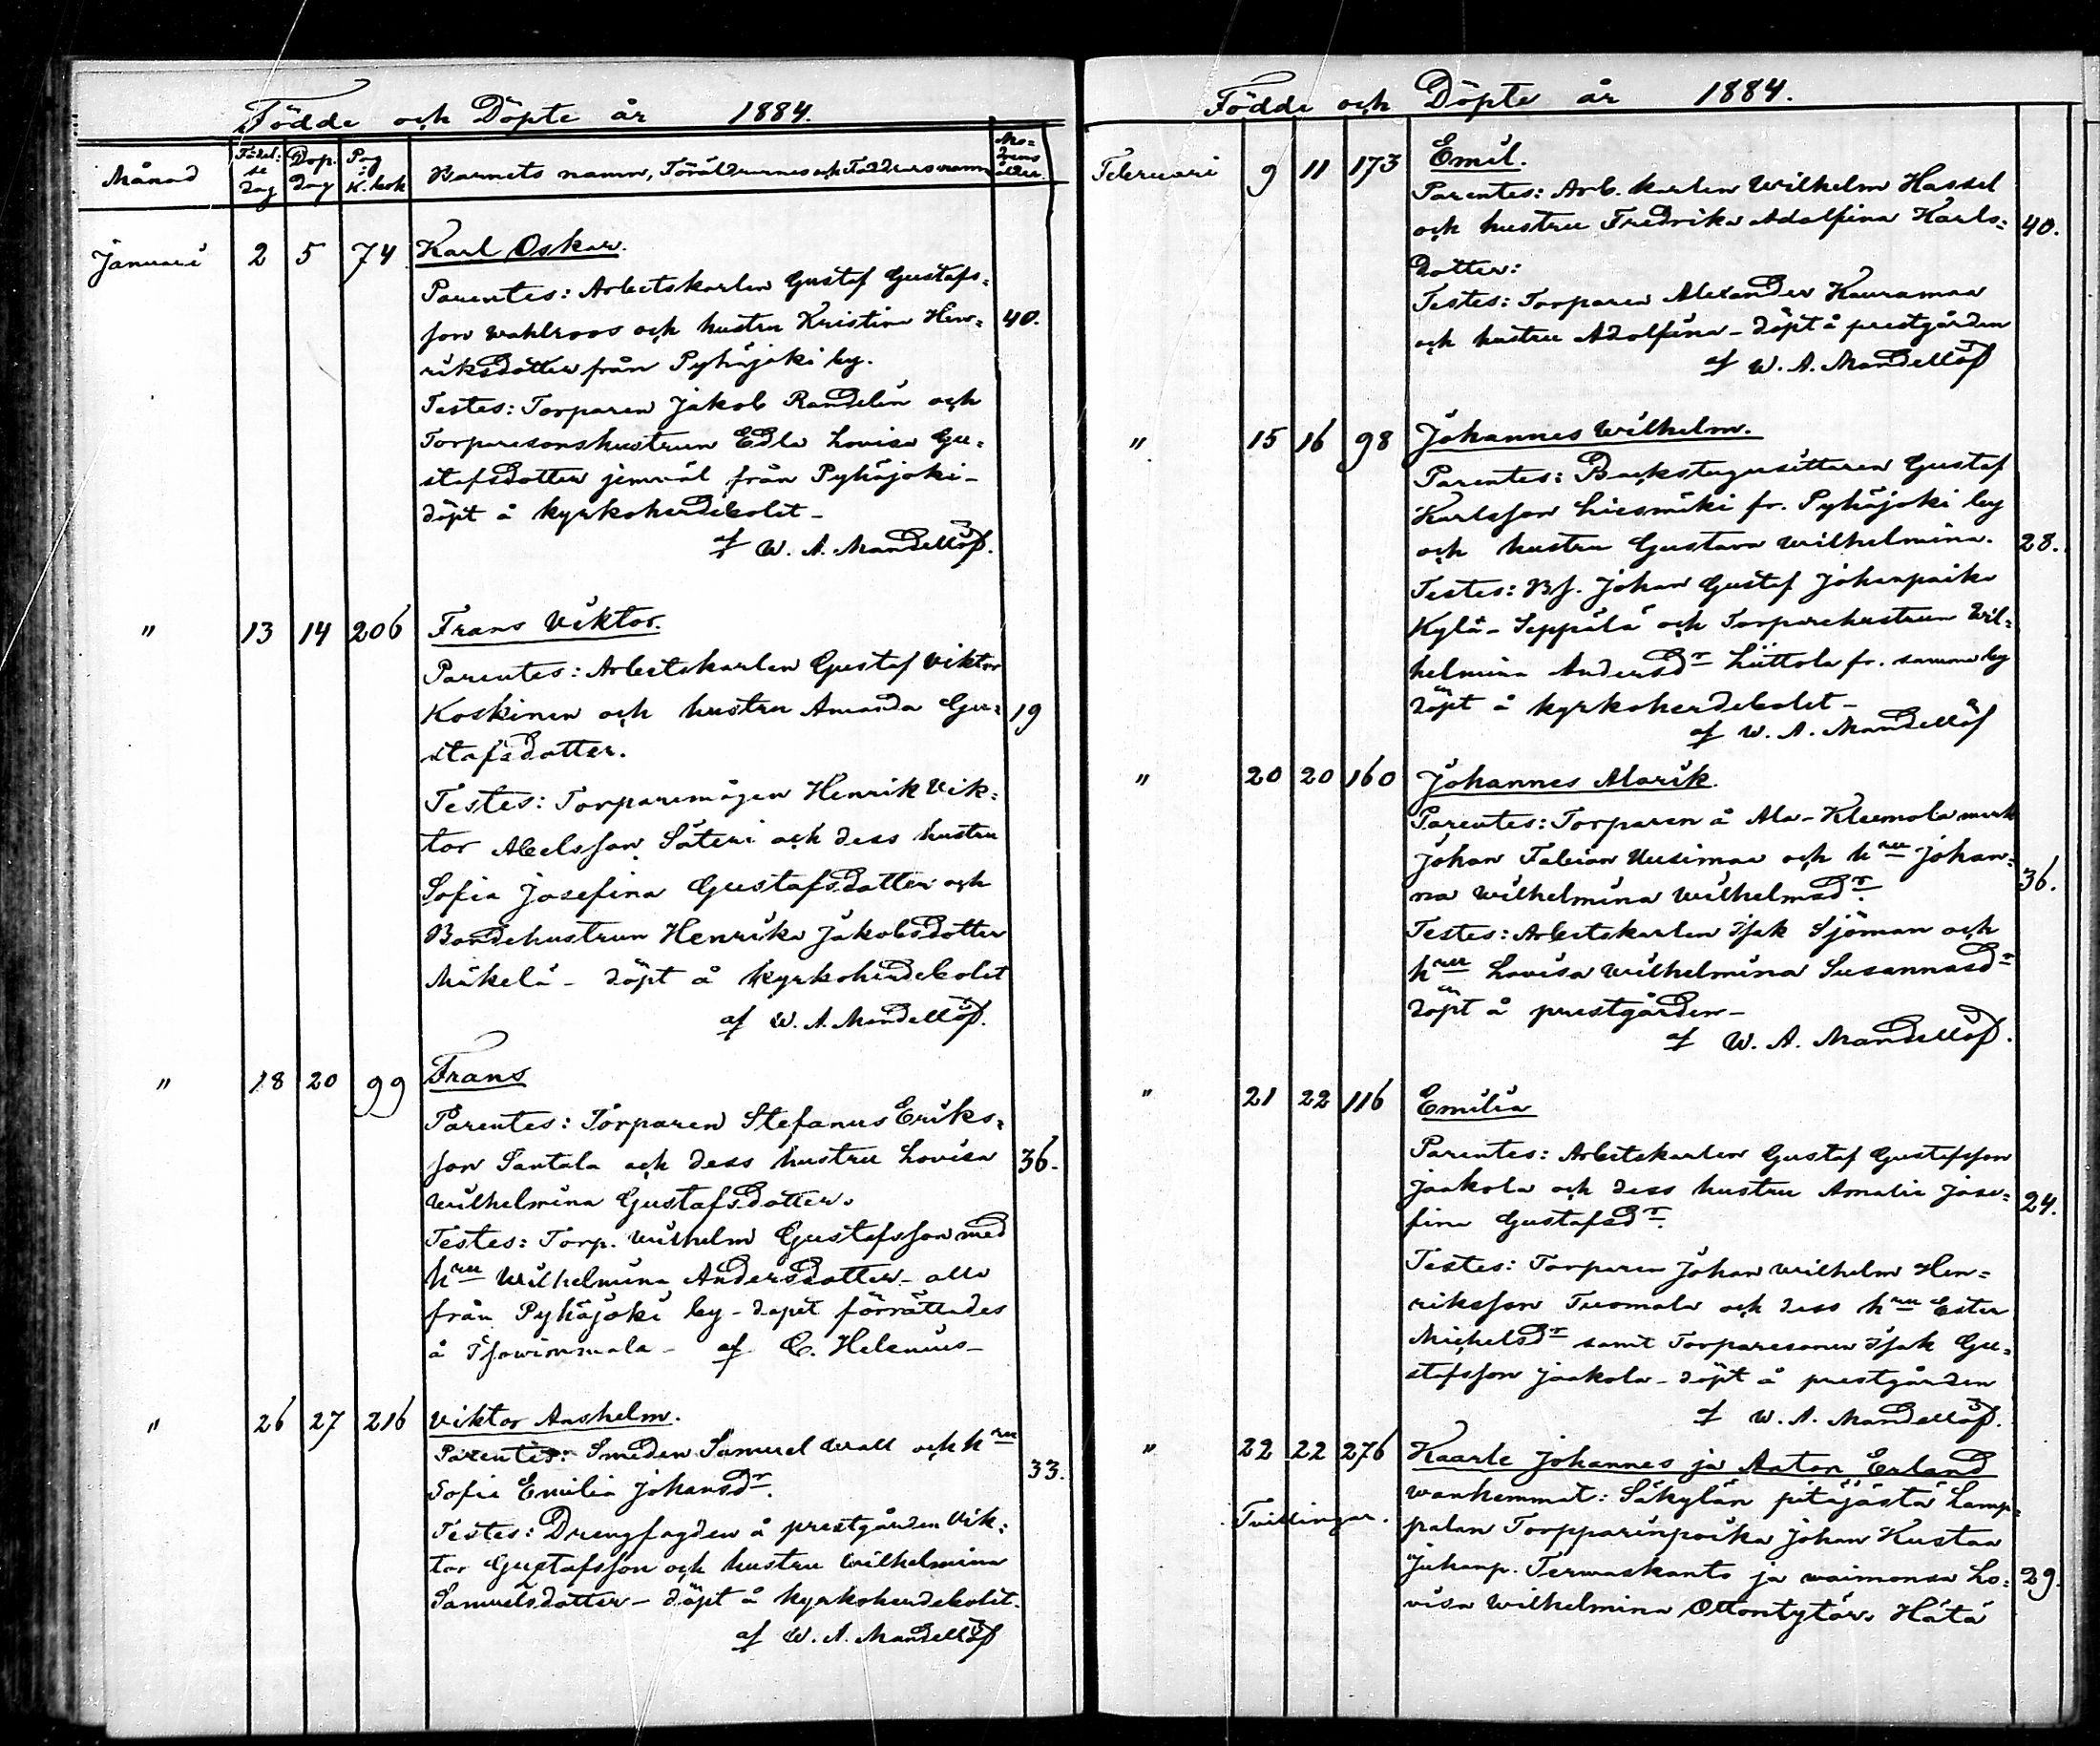 Födde och Döpte år 1884.
Månad Födel-se dag Dop. dag Pag i K. bok Barnets namn, Föräldrarnes och Faddrars namn Mo-drens ålder
Januari 2 5 74 Karl Oskar.
Parentes: Arbetskarlen Gustaf Gustafs-
son Wahlroos och hustru Kristina Hen- 40.
riksdotter från Pyhäjoki by.
Testes: Torparen Jakob Randelin och
Torparesonshustrun Edla Lovisa Gu-
stafsdotter jemväl från Pyhäjoki -
döpt å kyrkoherdebolet -
af W. A. Mandellöf.
" 13 14 206 Frans Viktor.
Parentes: Arbetskarlen Gustaf Viktor
Koskinen och hustru Amanda Gu- 19
stafsdotter.
Testes: Torparemågen Henrik Vik-
tor Abelsson Säteri och dess hustru
Sofia Josefina Gustafsdotter och
Bondehustrun Henrika Jakobsdotter
Mäkelä - döpt å kyrkoherdebolet
af W. A. Mandellöf.
" 18 20 99 Frans
Parentes: Torparen Stefanus Eriks-
son Santala och dess hustru Lovisa 36.
Wilhelmina Gustafsdotter.
Testes: Torp. Wilhelm Gustafsson med
hru Wilhelmina Andersdotter - alla
från Pyhäjoki by - dopet förrättades
å - af C. Helenius -
" 26 27 216 Viktor Anshelm.
Parentes: Smeden Samuel Wall och hru
Sofia Emilia Johansdr. 33.
Testes: Drengfogden å prestgården Vik-
tor Gustafsson och hustru Wilhelmina
Samuelsdotter - döpt å kyrkoherdebolet.
af W. A. Mandellöf
Födde och Döpte år 1884.
Februari 9 11 173 Emil.
Parentes: Arb. karlen Wilhelm Hassel
och hustru Fredrika Adolfina Karls- 40.
dotter:
Testes: Torparen Alexander Kauramaa
och hustru Adolfina - döpt å prestgården
af W. A. Mandellöf
" 15 16 98 Johannes Wilhelm.
Parentes: Backstugusittaren Gustaf
Karlsson Liesmäki fr. Pyhäjoki by
och hustru Gustava Wilhelmina. 28.
Testes: Bf. Johan Gustaf Johanpoika
Kylä-Seppälä och Torparehustrun Wil-
helmina Andersdr Liittola fr. samma by
döpt å kyrkoherdebolet -
af W. A. Mandellöf
" 20 20 160 Johannes Alarik.
Parentes: Torparen å Ala-Kleemola mark
Johan Fabian Uusimaa och hru Johan-
na Wilhelmina Wilhelmsdr. 36.
Testes: Arbetskarlen Isak Sjöman och
hru Lovisa Wilhelmina Susannasdr
döpt å prestgården -
af W. A. Mandellöf.
" 21 22 116 Emilia
Parentes: Arbetskarlen Gustaf Gustafsson
Jaakola och dess hustru Amalia Jose- 24.
fina Gustafsdr.
Testes: Torparen Johan Wilhelm Hen-
riksson Tuomola och dess hru Ester
Michelsdr samt Torparesonen Isak Gu-
stafsson Jaakola - döpt å prestgården
af W. A. Mandellöf.
" 22 22 276 Kaarle Johannes ja Anton Erland
Tvillingar. wanhemmat: Säkylän pitäjästä Lamp-
palan Torpparinpoika Johan Kustaa
Juhanp. Terwaskanto ja waimonsa Lo- 29.
visa Wilhelmina Ottontytär. Hätä